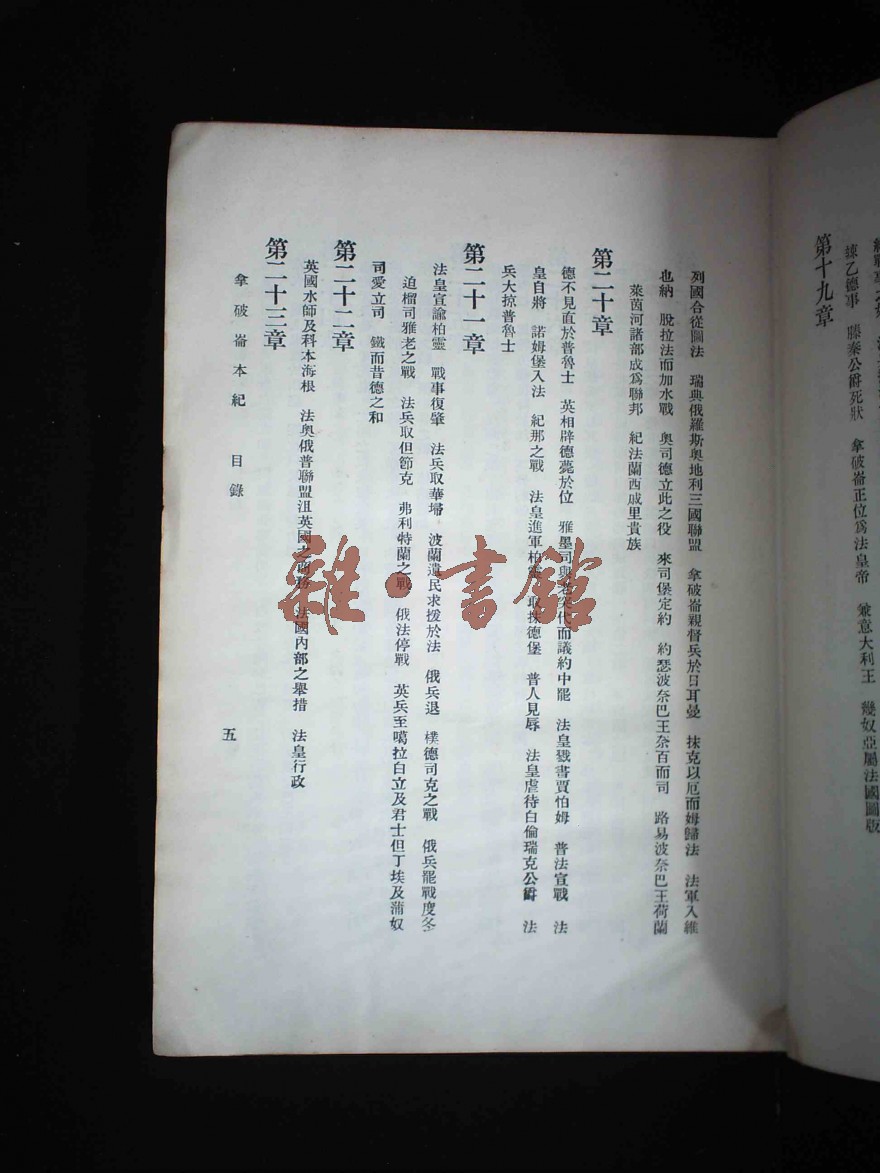 第十九章
練乙德事　滕秦公爵死狀　拿破崙正位爲法皇帝　兼意大利王　幾奴亞屬法國圖版
列國合從圖法　瑞典俄羅斯奧地利三國聯盟　拿破崙親督兵於日耳曼　抹克以厄而姆歸法　法軍入維
也納　脫拉法而加水戰　奧司德立此之役　來司堡定約　約瑟波奈巴王奈百而司　路易波奈巴王荷蘭
萊茵河諸部成爲聯邦　紀法蘭西戚里貴族
第二十章
德不見直於普魯士　英相辟德薨於位　雅墨司與老代而議約中罷　法皇戮書賈怕姆　普法宣戰　法
皇自將　諾姆堡入法　紀那之戰　法皇進軍柏靈　取抹德堡　普人見辱　法皇虐待白倫瑞克公爵　法
兵大掠普魯士
第二十一章
法皇宣諭柏靈　戰事復肇　法兵取華埽　波蘭遺民求援於法　俄兵退　樸德司克之戰　俄兵罷戰度冬
迫榴司雅老之戰　法兵取但節克　弗利特蘭之戰　俄法停戰　英兵至噶拉白立及君士但丁埃及蒲奴
司愛立司　鐵而昔德之和
第二十二章
英國水師及科本海根　法奧俄普聯盟沮英國之商務　法國內部之舉措　法皇行政
第二十三章
拿破崙本紀　目錄
五
雜·書館